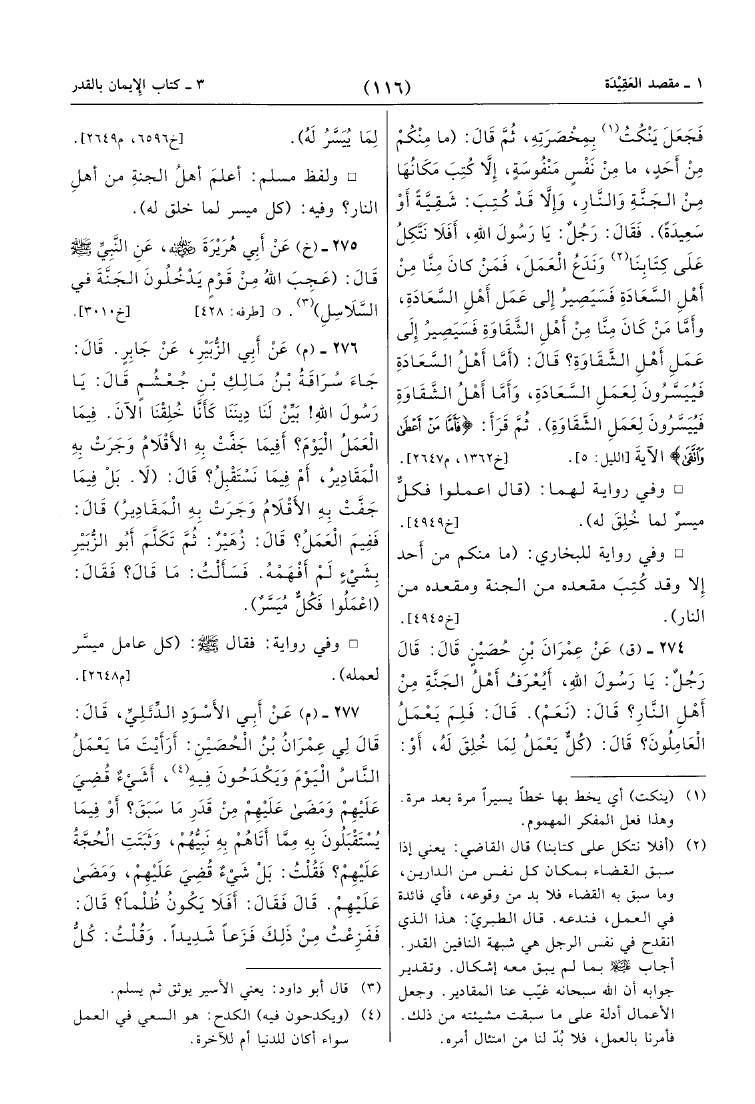 ١ ـ مقصد العَقِيْدَة
(١١٦)
٣ ـ كتاب الإيمان بالقدر
فَجَعَلَ يَنْكُتُ(١) بِمِخْصَرَتِهِ، ثُمَّ قَالَ: (ما مِنْكُمْ
مِنْ أَحَدٍ، ما مِنْ نَفْسٍ مَنْفُوسَةٍ، إِلَّا كُتِبَ مَكَانُهَا
مِنْ الجَنَّةِ وَالنَّارِ، وَإِلَّا قَدْ كُتِبَ: شَقِيَّةً أَوْ
سَعِيدَةً). فَقَالَ: رَجُلٌ: يَا رَسُولَ اللهِ، أَفَلَا نَتَّكِلُ
عَلَى كِتَابِنَا(٢) وَنَدَعُ الْعَمَلَ، فَمَنْ كانَ مِنَّا مِنْ
أَهْلِ السَّعَادَةِ فَسَيَصِيرُ إِلى عَمَلِ أَهْلِ السَّعَادَةِ،
وأَمَّا مَنْ كَانَ مِنَّا مِنْ أَهْلِ الشَّقَاوَةِ فَسَيَصِيرُ إِلَى
عَمَلِ أَهْلِ الشَّقَاوَةِ؟ قالَ: (أَمَّا أَهْلُ السَّعَادَةِ
فَيُيَسَّرُونَ لِعَمَلِ السَّعَادَةِ، وَأَمَّا أَهْلُ الشَّقَاوَةِ
فَيُيَسَّرُونَ لِعَمَلِ الشَّقَاوَةِ). ثُمَّ قَرَأَ: ﴿فَأَمَّا مَنْ أَعْطَىٰ
وَٱتَّقَىٰ﴾ الآيَةَ [الليل: ٥]. [خ١٣٦٢، م٢٦٤٧].
□ وفي رواية لهما: (قال اعملوا فكلٌّ
ميسرٌ لما خُلِقَ له). [خ٤٩٤٩].
□ وفي رواية للبخاري: (ما منكم من أحد
إلا وقد كُتِبَ مقعده من الجنة ومقعده من
النار). [خ٤٩٤٥].
٢٧٤ ـ (ق) عَنْ عِمْرَانَ بْنِ حُصَيْنٍ قَالَ: قَالَ
رَجُلٌ: يَا رَسُولَ اللهِ، أَيُعْرَفُ أَهْلُ الجَنَّةِ مِنْ
أَهْلِ النَّارِ؟ قَالَ: (نَعَمْ). قَالَ: فَلِمَ يَعْمَلُ
الْعَامِلُونَ؟ قالَ: (كُلٌّ يَعْمَلُ لِمَا خُلِقَ لَهُ، أَوْ:
(١) (ينكت) أي يخط بها خطاً يسيراً مرة بعد مرة.
وهذا فعل المفكر المهموم.
(٢) (أفلا نتكل على كتابنا) قال القاضي: يعني إذا
سبق القضاء بمكان كل نفس من الدارين،
وما سبق به القضاء فلا بد من وقوعه، فأي فائدة
في العمل، فندعه. قال الطبريّ: هذا الذي
انقدح في نفس الرجل هي شبهة النافين القدر.
أجاب ﷺ بما لم يبق معه إشكال. وتقدير
جوابه أن الله سبحانه غيّب عنا المقادير. وجعل
الأعمال أدلة على ما سبقت مشيئته من ذلك.
فأمرنا بالعمل، فلا بُدّ لنا من امتثال أمره.
لِمَا يُيَسَّرُ لَهُ). [خ٦٥٩٦، م٢٦٤٩].
□ ولفظ مسلم: أعلمَ أهلُ الجنةِ من أهلِ
النار؟ وفيه: (كل ميسر لما خلق له).
٢٧٥ ـ (خ) عَنْ أَبِي هُرَيْرَةَ رضي الله عنه، عَنِ النَّبِيِّ ﷺ
قَالَ: (عَجِبَ اللهُ مِنْ قَوْمٍ يَدْخُلُونَ الجَنَّةَ في
السَّلَاسِلِ)(٣). ○ [طرفه: ٤٢٨] [خ٣٠١٠].
٢٧٦ ـ (م) عَنْ أَبِي الزُّبَيْرِ، عَنْ جَابِرٍ. قَالَ:
جَاءَ سُرَاقَةُ بْنُ مَالِكِ بْنِ جُعْشُمٍ قَالَ: يَا
رَسُولَ اللهِ! بَيِّنْ لَنَا دِينَنَا كَأَنَّا خُلِقْنَا الآنَ. فِيمَا
الْعَمَلُ الْيَوْمَ؟ أَفِيمَا جَفَّتْ بِهِ الأَقْلَامُ وَجَرَتْ بِهِ
الْمَقَادِيرُ، أَمْ فِيمَا نَسْتَقْبِلُ؟ قَالَ: (لَا. بَلْ فِيمَا
جَفَّتْ بِهِ الأَقْلَامُ وَجَرَتْ بِهِ الْمَقَادِيرُ) قَالَ:
فَفِيمَ الْعَمَلُ؟ قَالَ: زُهَيْرٌ: ثُمَّ تَكَلَّمَ أَبُو الزُّبَيْرِ
بِشَيْءٍ لَمْ أَفْهَمْهُ. فَسَأَلْتُ: مَا قَالَ؟ فَقَالَ:
(اعْمَلُوا فَكُلٌّ مُيَسَّرٌ).
□ وفي رواية: فقال ﷺ: (كل عامل ميسَّر
لعمله). [م٢٦٤٨].
٢٧٧ ـ (م) عَنْ أَبِي الأَسْوَدِ الدِّئَلِيِّ، قَالَ:
قَالَ لِي عِمْرَانُ بْنُ الْحُصَيْنِ: أَرَأَيْتَ مَا يَعْمَلُ
النَّاسُ الْيَوْمَ وَيَكْدَحُونَ فِيهِ(٤)، أَشَيْءٌ قُضِيَ
عَلَيْهِمْ وَمَضَىٰ عَلَيْهِمْ مِنْ قَدَرِ مَا سَبَقَ؟ أَوْ فِيمَا
يُسْتَقْبَلُونَ بِهِ مِمَّا أَتَاهُمْ بِهِ نَبِيُّهُمْ، وَثَبَتَتِ الْحُجَّةُ
عَلَيْهِمْ؟ فَقُلْتُ: بَلْ شَيْءٌ قُضِيَ عَلَيْهِمْ، وَمَضَىٰ
عَلَيْهِمْ. قَالَ فَقَالَ: أَفَلَا يَكُونُ ظُلْماً؟ قَالَ:
فَفَزِعْتُ مِنْ ذَلِكَ فَزَعاً شَدِيداً. وَقُلْتُ: كُلُّ
(٣) قال أبو داود: يعني الأسير يوثق ثم يسلم.
(٤) (ويكدحون فيه) الكدح: هو السعي في العمل
سواء أكان للدنيا أم للآخرة.